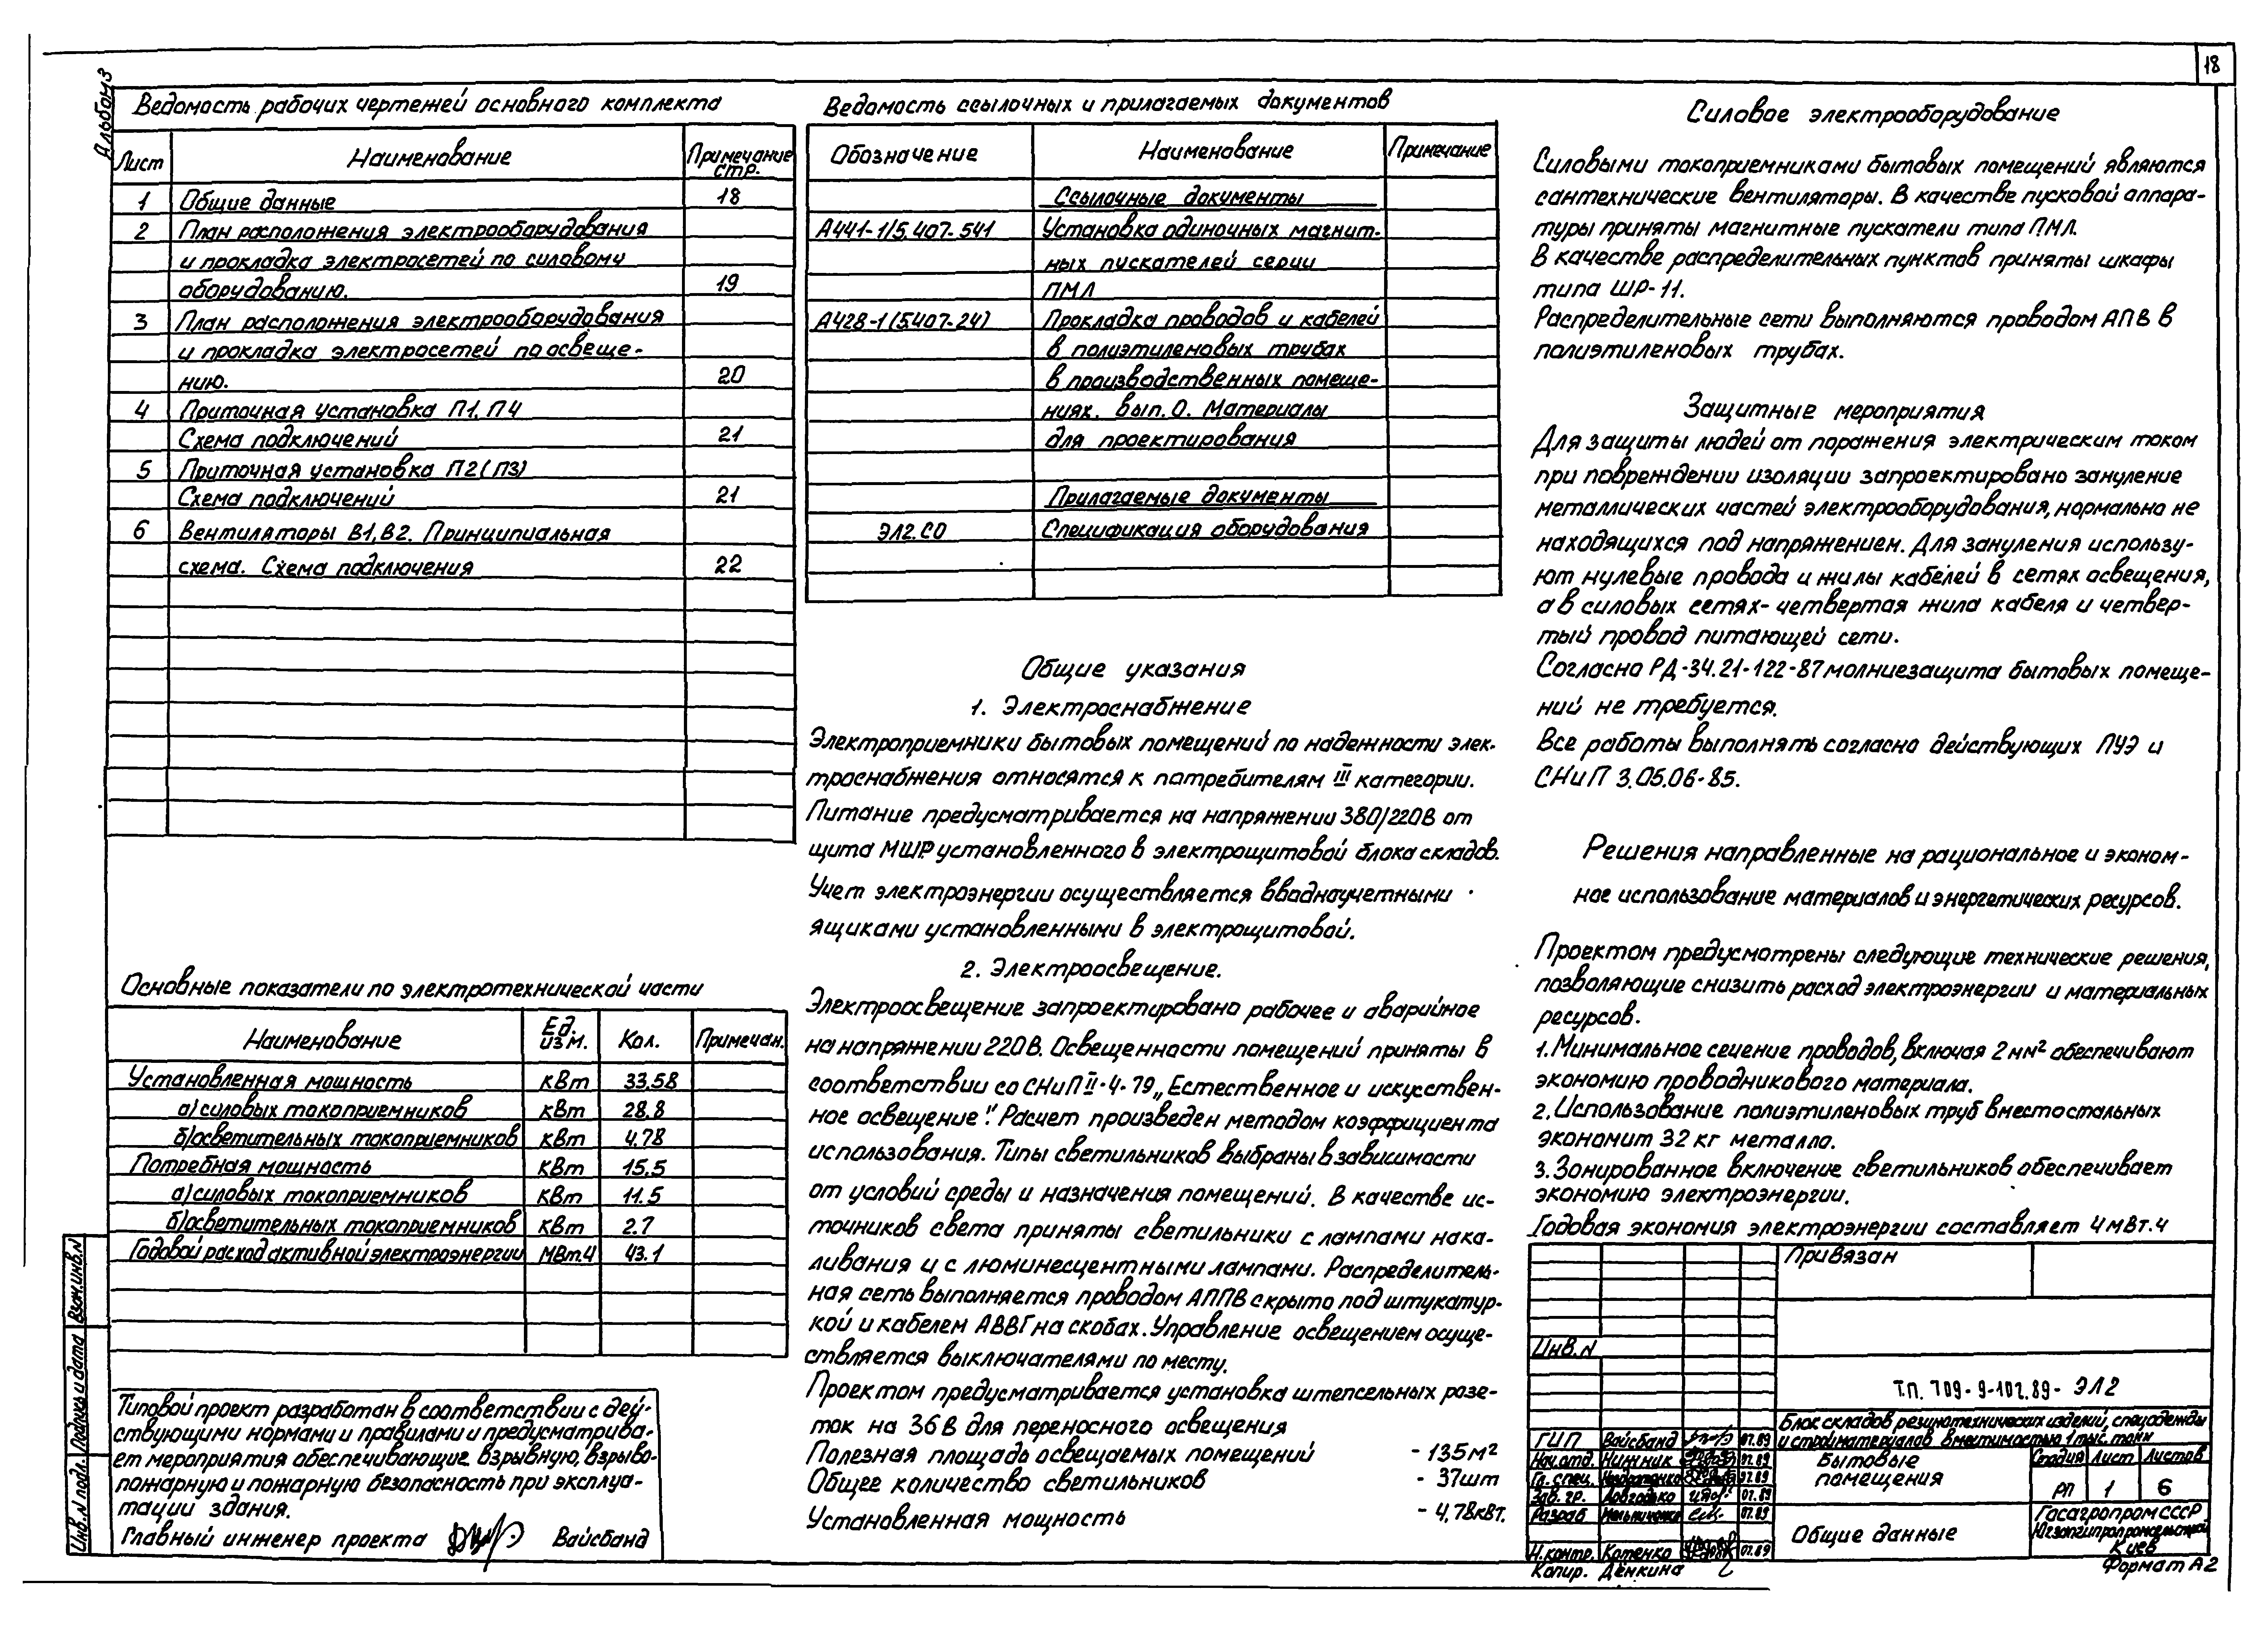 18
Альбом 3
Ведомость рабочих чертежей основного комплекта
Лист Наименование Примечание стр.
1 Общие данные 18
2 План расположения электрооборудования
и прокладка электросетей по силовому
оборудованию. 19
3 План расположения электрооборудования
и прокладка электросетей по освеще-
нию. 20
4 Приточная установка П1, П4
Схема подключений 21
5 Приточная установка П2(П3)
Схема подключений 21
6 Вентиляторы В1, В2. Принципиальная
схема. Схема подключения 22
Основные показатели по электротехнической части
Наименование Ед. изм. Кол. Примечан.
Установленная мощность кВт 33.58
а) силовых токоприемников кВт 28.8
б) осветительных токоприемников кВт 4.78
Потребная мощность кВт 15.5
а) силовых токоприемников кВт 11.5
б) осветительных токоприемников кВт 2.7
Годовой расход активной электроэнергии МВт.ч 43.1
Типовой проект разработан в соответствии с дей-
ствующими нормами и правилами и предусматрива-
ет мероприятия обеспечивающие взрывную, взрыво-
пожарную и пожарную безопасность при эксплуа-
тации здания.
Главный инженер проекта Вайсбанд
Взам.инв.N
Подпись и дата
Инв.N подл.
Ведомость ссылочных и прилагаемых документов
Обозначение Наименование Примечание
Ссылочные документы
А441-1/5.407-541 Установка одиночных магнит-
ных пускателей серии
ПМЛ
А428-1(5.407-24) Прокладка проводов и кабелей
в полиэтиленовых трубах
в производственных помеще-
ниях. Вып. 0. Материалы
для проектирования
Прилагаемые документы
ЭЛ2.СО Спецификация оборудования
Общие указания
1. Электроснабжение
Электроприемники бытовых помещений по надежности элек-
троснабжения относятся к потребителям III категории.
Питание предусматривается на напряжении 380/220В от
щита МШР установленного в электрощитовой блока складов.
Учет электроэнергии осуществляется вводноучетными
ящиками установленными в электрощитовой.
2. Электроосвещение.
Электроосвещение запроектировано рабочее и аварийное
на напряжении 220В. Освещенности помещений приняты в
соответствии со СНиП II-4-79 „Естественное и искусствен-
ное освещение". Расчет произведен методом коэффициента
использования. Типы светильников выбраны в зависимости
от условий среды и назначения помещений. В качестве ис-
точников света приняты светильники с лампами нака-
ливания и с люминесцентными лампами. Распределитель-
ная сеть выполняется проводом АППВ скрыто под штукатур-
кой и кабелем АВВГ на скобах. Управление освещением осуще-
ствляется выключателями по месту.
Проектом предусматривается установка штепсельных розе-
ток на 36В для переносного освещения
Полезная площадь освещаемых помещений - 135м²
Общее количество светильников - 37шт
Установленная мощность - 4,78кВт.
Силовое электрооборудование
Силовыми токоприемниками бытовых помещений являются
сантехнические вентиляторы. В качестве пусковой аппара-
туры приняты магнитные пускатели типа ПМЛ.
В качестве распределительных пунктов приняты шкафы
типа ШР-11.
Распределительные сети выполняются проводом АПВ в
полиэтиленовых трубах.
Защитные мероприятия
Для защиты людей от поражения электрическим током
при повреждении изоляции запроектировано зануление
металлических частей электрооборудования, нормально не
находящихся под напряжением. Для зануления использу-
ют нулевые провода и жилы кабелей в сетях освещения,
а в силовых сетях- четвертая жила кабеля и четвер-
тый провод питающей сети.
Согласно РД-34.21-122-87 молниезащита бытовых помеще-
ний не требуется.
Все работы выполнять согласно действующих ПУЭ и
СНиП 3.05.06-85.
Решения направленные на рациональное и эконом-
ное использование материалов и энергетических ресурсов.
Проектом предусмотрены следующие технические решения,
позволяющие снизить расход электроэнергии и материальных
ресурсов.
1. Минимальное сечение проводов, включая 2мм² обеспечивают
экономию проводникового материала.
2. Использование полиэтиленовых труб вместо стальных
экономит 32 кг металла.
3. Зонированное включение светильников обеспечивает
экономию электроэнергии.
Годовая экономия электроэнергии составляет 4мВт.ч
Привязан
Инв.N
Т.П. 709-9-102.89- ЭЛ2
Блок складов резинотехнических изделий, спецодежды
и стройматериалов вместимостью 1 тыс. тонн
ГИП Вайсбанд 07.89
Нач.отд. Нижник 07.89
Гл. спец. 07.89
Зав. гр. Довгодько 07.89
Разраб. 07.89
Н.контр. Котенко 07.89
Бытовые
помещения
Стадия Лист Листов
РП 1 6
Общие данные
Госагропром СССР
Киев
Копир. Дёнкина
Формат А2